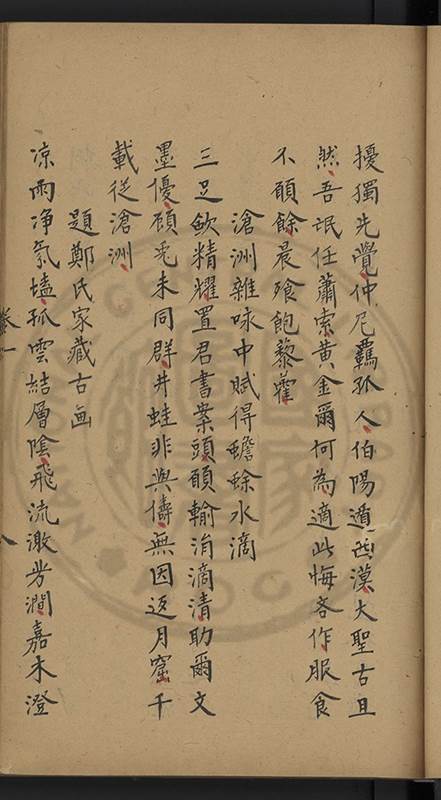 擾獨先覺仲尼羈孤人伯陽遁西漠大聖古且
然吾氓任蕭索黃金爾何為適此悔吝作服食
不願餘晨飱飽藜藿
滄洲雜咏中賦得蟾蜍水滴
三足歛精耀置君書案頭願輸涓滴清助爾文
墨優顧兎未同群井蛙非與儔無因返月窟千
載從滄洲
題鄭氏家藏古画
凉雨净氛壒孤雲結層陰飛流激芳澗嘉木澄